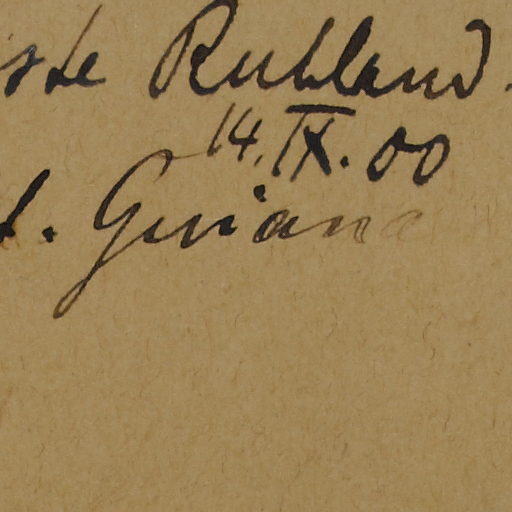 ste Ruhland.
14. IX. 00
t. Guiana